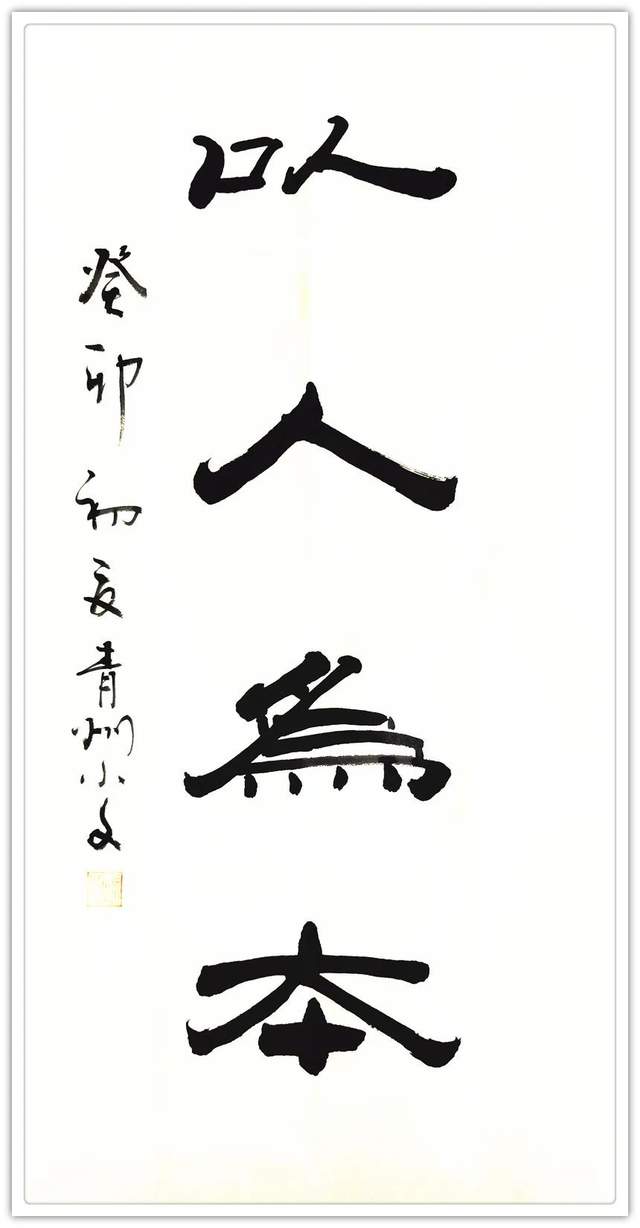 以人為本
癸卯初夏青州小文